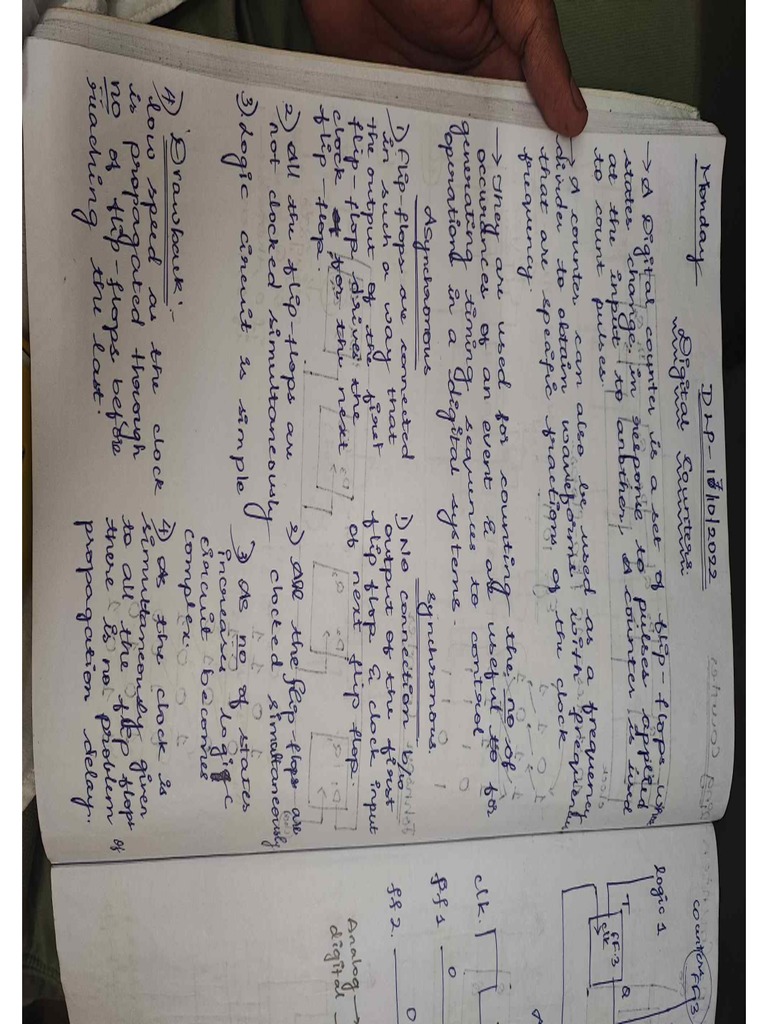 Monday
DLP-17/10/2022
Digital Counters
→ A Digital counter is a set of flip-flops whose
states change in response to pulses applied
at the input to another. A counter is used
to count pulses.
→ A counter can also be used as a frequency
divider to obtain waveforms with frequency
that are specific fractions of the clock
frequency.
→ They are used for counting the no of
occurances of an event & are useful to for
generating timing sequences to control
operation in a digital systems.
Asynchronous
1) Flip-flops are connected
in such a way that
the output of the first
flip-flop drives the
clock of for the next
flip-flop.
2) All the flip-flops are
not clocked simultaneously
3) Logic circuit is simple
4) Drawback:-
low speed as the clock
is propagated thorough
no of flip-flops before
reaching the last.
Synchronous
1) No connection b/w
output of the first
flip flop & clock input
of next flip flop.
2) All the flip-flops are
clocked simultaneously
3) As no of states
increases logic
circuit becomes
complex.
4) As the clock is
simultaneously given
to all the flip flops
there is no problem of
propagation delay.
counters
logic 1
T
FF-3
clk
Q
clk.
ff1
0
ff2.
0
Analog →
digital →